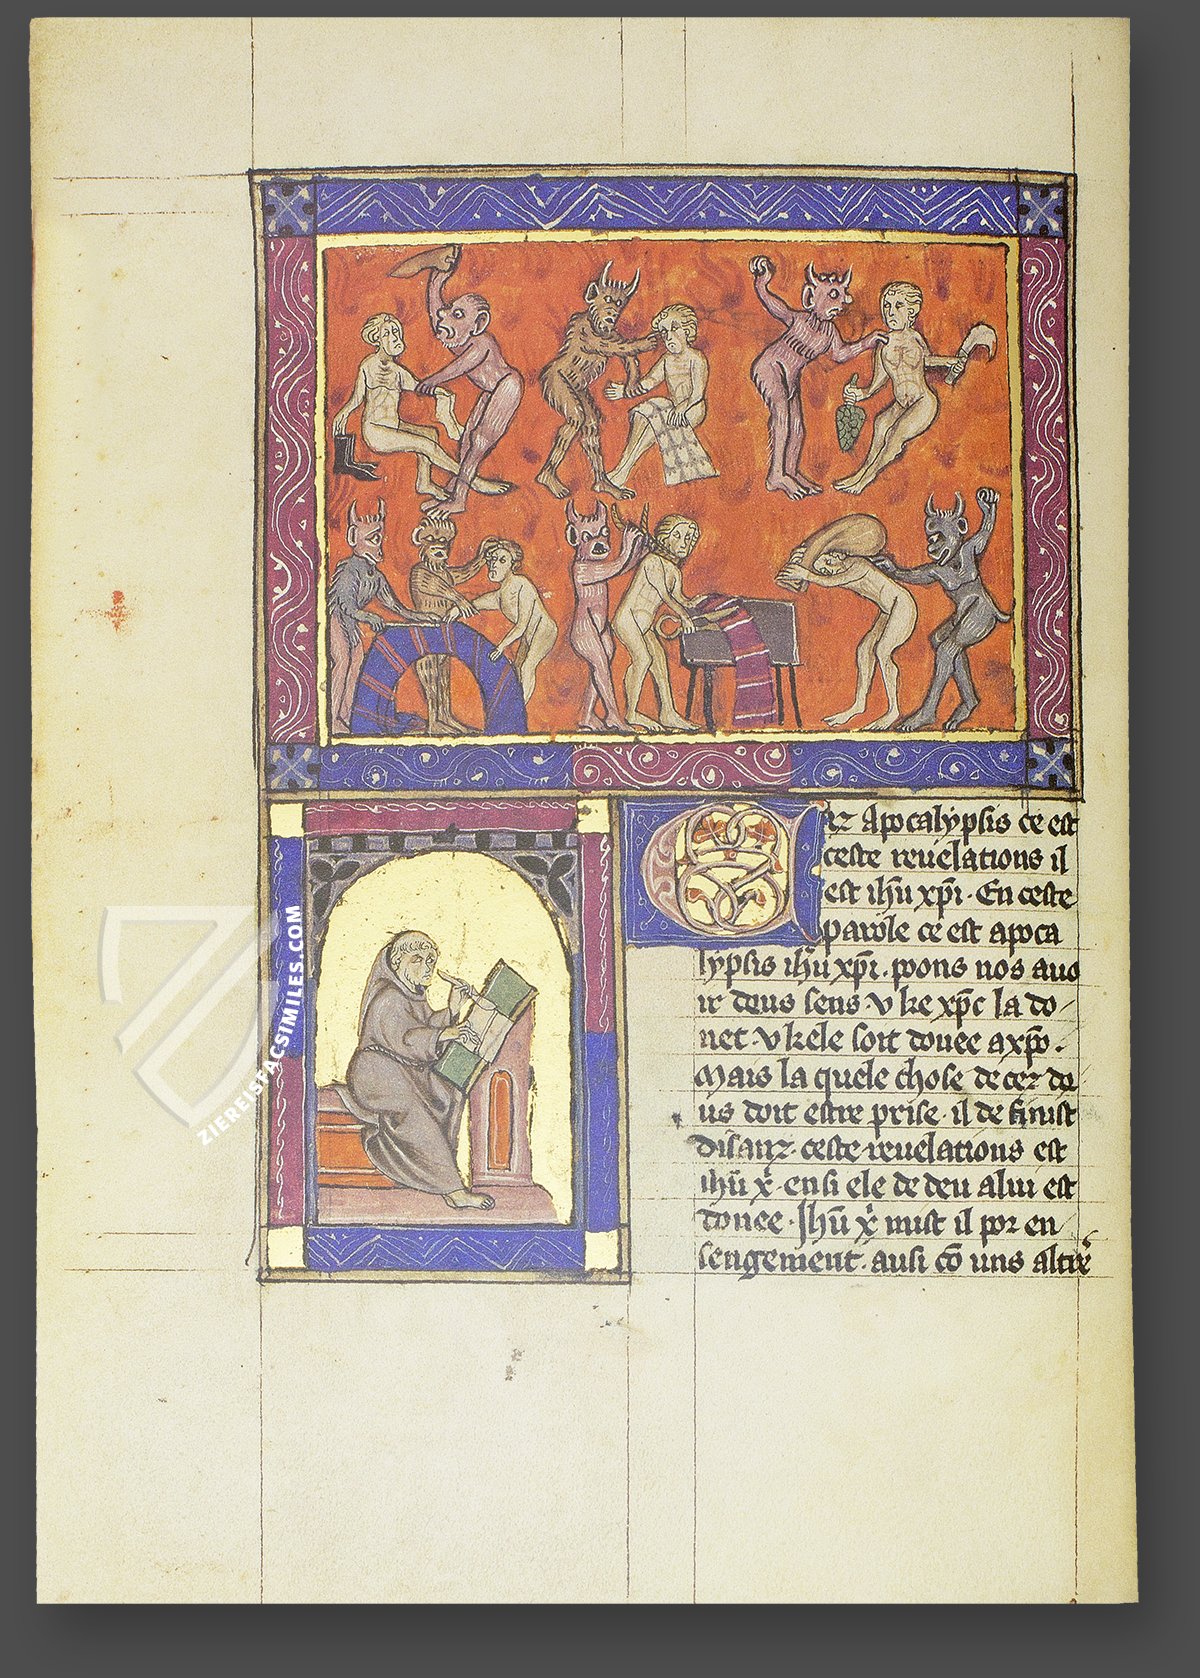 ZIEREISFACSIMILES.COM
Cez Apocalypsis ce est
ceste reuelations il
est ihu̅ xp̅i · En ceste
parole ce est apoca
lypsis ihu̅ xp̅i · poons nos auo
ir deus sens · v ke xp̅c la do
net · v kele soit donee a xp̅o ·
Mais la quele chose de cez de
us doit estre prise · il de
disanz · ceste reuelations est
ihu̅ x̅ · ensi ele de deu a lui est
donee · Ihu̅ x̅ mist il por en
sengement · ausi co̅ uns altre